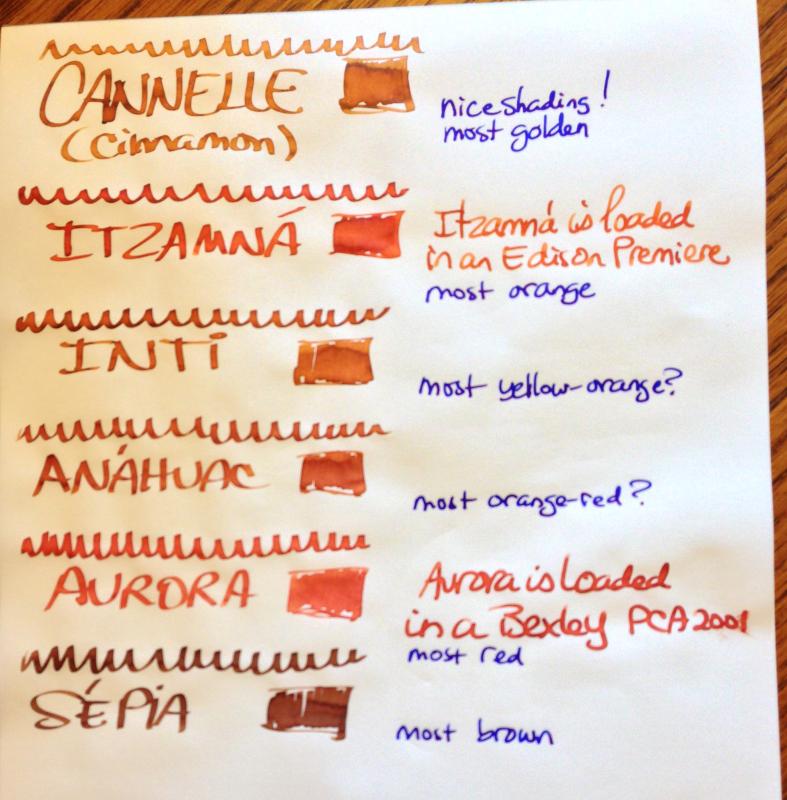 CANNELLE
(cinnamon)
nice shading!
most golden
ITZAMNÁ
Itzamná is loaded
in an Edison Premiere
most orange
INTI
most yellow-orange?
ANÁHUAC
most orange-red?
AURORA
Aurora is loaded
in a Bexley PCA 2001
most red
SÉPIA
most brown